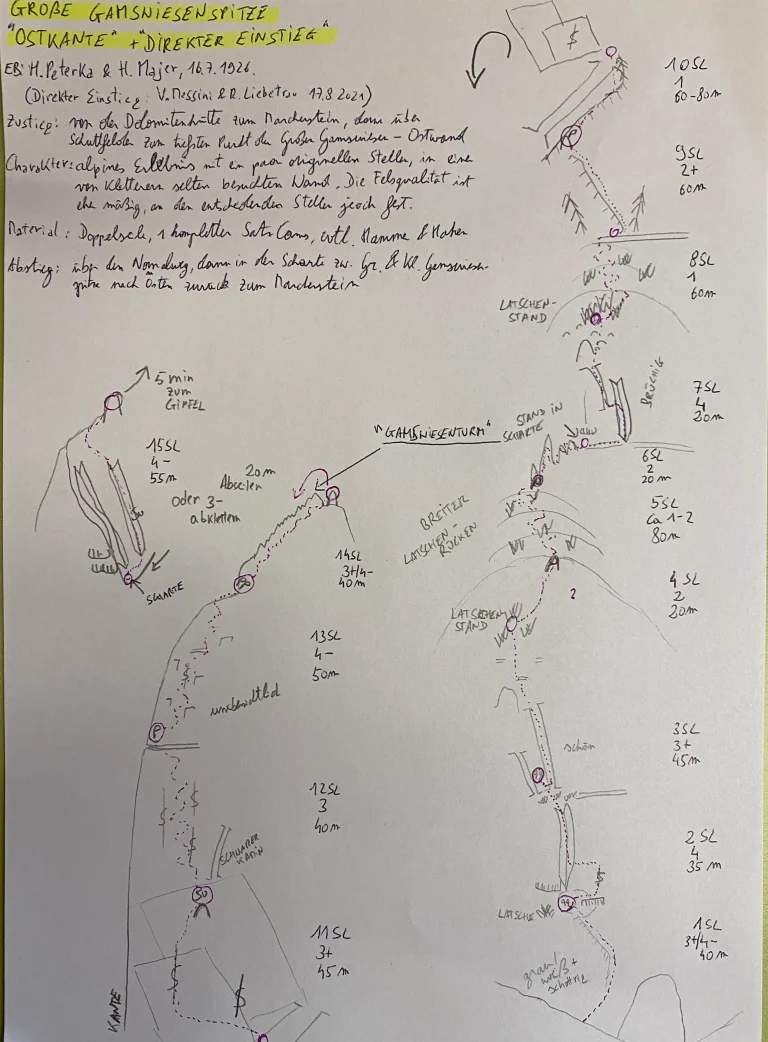 GROßE GAMSWIESENSPITZE
"OSTKANTE" + "DIREKTER EINSTIEG"
EB: H. Peterka & H. Majer, 16.7.1926.
(Direkter Einstieg: V. Messini & R. Liebetrau 17.8.2021)
Zustieg: von der Dolomitenhütte zum Marcherstein, dann über
Schuttfelder zum tiefsten Punkt der Großen Gamswiesen-Ostwand
Charakter: alpines Erlebnis mit ein paar originellen Stellen, in einer
von Kletterern selten besuchten Wand. Die Felsqualität ist
eher mäßig, an den entscheidenden Stellen jedoch fest.
Material: Doppelseil, 1 kompletter Satz Cams, evtl. Hammer & Haken
Abstieg: über den Normalweg, dann in der Scharte zw. Gr. & Kl. Gamswiesen-
spitze nach Osten zurück zum Marcherstein
10SL
1
60-80m
9SL
2+
60m
8SL
1
60m
LATSCHEN-
STAND
BRÜCHIG
7SL
4
20m
STAND IN
SCHARTE
6SL
2
20m
BREITER
LATSCHEN-
RÜCKEN
5SL
ca 1-2
80m
4SL
2
20m
?
LATSCHEN
STAND
3SL
3+
45m
schön
2SL
4
35m
LATSCHE
1SL
3+/4-
40m
grau/
weiß +
schottrig
5 min
zum
GIPFEL
15SL
4-
55m
SCHARTE
20m
Abseilen
oder 3-
abklettern
"GAMSWIESENTURM"
14SL
3+/4-
40m
SU
13SL
4-
50m
unübersichtlich
P
12SL
3
40m
SCHWARZER
KAMIN
SU
11SL
3+
45m
KANTE